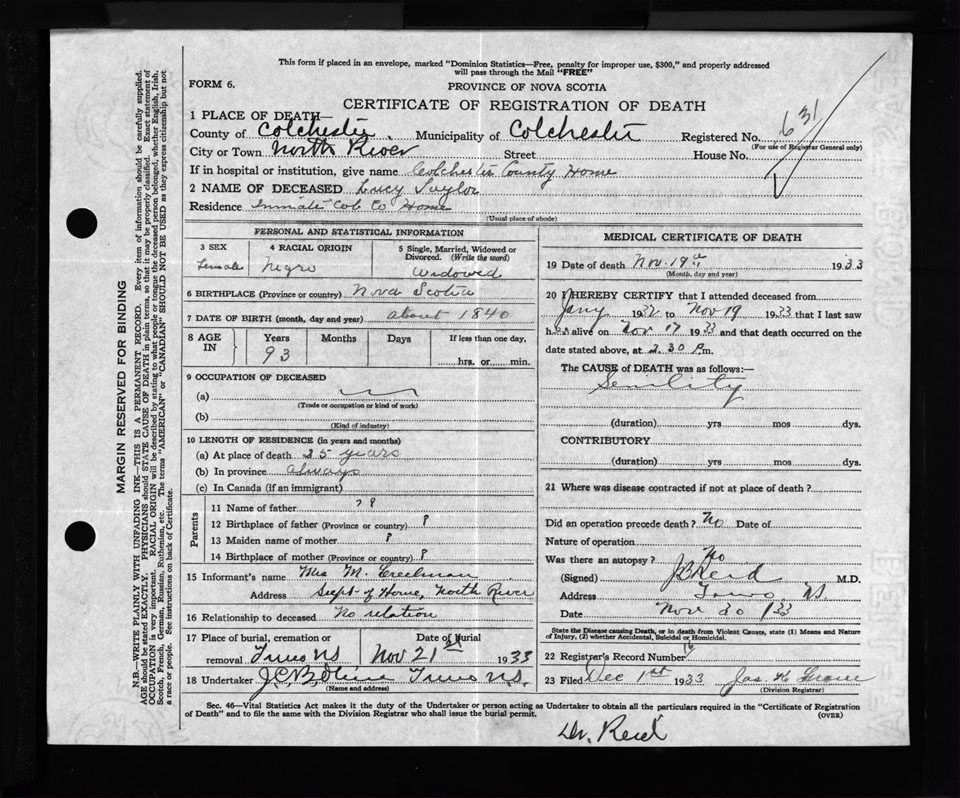 This form if placed in an envelope, marked "Dominion Statistics—Free, penalty for improper use, $300," and properly addressed
will pass through the Mail "FREE"
FORM 6.
PROVINCE OF NOVA SCOTIA
CERTIFICATE OF REGISTRATION OF DEATH
1 PLACE OF DEATH—
County of Colchester Municipality of Colchester Registered No. 631
(For use of Registrar General only)
City or Town North River Street House No.
If in hospital or institution, give name Colchester County Home
2 NAME OF DECEASED Lucy Taylor
Residence Inmate Col. Co Home
(Usual place of abode)
PERSONAL AND STATISTICAL INFORMATION
3 SEX 4 RACIAL ORIGIN 5 Single, Married, Widowed or
Divorced. (Write the word)
Female Negro Widowed
6 BIRTHPLACE (Province or country) Nova Scotia
7 DATE OF BIRTH (month, day and year) about 1840
8 AGE IN Years Months Days If less than one day,
93 hrs. or min.
9 OCCUPATION OF DECEASED
(a)
(Trade or occupation or kind of work)
(b)
(Kind of industry)
10 LENGTH OF RESIDENCE (in years and months)
(a) At place of death 25 years
(b) In province always
(c) In Canada (if an immigrant)
Parents
11 Name of father ? ?
12 Birthplace of father (Province or country) ?
13 Maiden name of mother ?
14 Birthplace of mother (Province or country) ?
15 Informant's name Mrs M. Creelman
Address Supt of Home, North River
16 Relationship to deceased No relation
17 Place of burial, cremation or Date of Burial
removal Truro NS Nov 21st 1933
18 Undertaker Truro N.S.
(Name and address)
MEDICAL CERTIFICATE OF DEATH
19 Date of death Nov. 19th 1933
(Month, day and year)
20 I HEREBY CERTIFY that I attended deceased from
Jany 1932 to Nov 19 1933 that I last saw
her alive on Nov 17 1933 and that death occurred on the
date stated above, at 2.30 P.m.
The CAUSE of DEATH was as follows:—
Senility
(duration) yrs mos dys.
CONTRIBUTORY
(duration) yrs mos dys.
21 Where was disease contracted if not at place of death?
Did an operation precede death? No Date of
Nature of operation
Was there an autopsy? No
(Signed) J B Reid M.D.
Address Truro NS
Date Nov 20 1933
State the Disease causing Death, or in death from Violent Causes, state (1) Means and Nature
of Injury, (2) whether Accidental, Suicidal or Homicidal.
22 Registrar's Record Number
23 Filed Dec 1st 1933 Jas K
(Division Registrar)
Sec. 46—Vital Statistics Act makes it the duty of the Undertaker or person acting as Undertaker to obtain all the particulars required in the "Certificate of Registration
of Death" and to file the same with the Division Registrar who shall issue the burial permit. (OVER)
Dr. Reid
MARGIN RESERVED FOR BINDING
N.B.—WRITE PLAINLY WITH UNFADING INK—THIS IS A PERMANENT RECORD. Every item of information should be carefully supplied.
AGE should be stated EXACTLY. PHYSICIANS should STATE CAUSE OF DEATH in plain terms, so that it may be properly classified. Exact statement of
OCCUPATION is very important. RACIAL ORIGIN will be described by stating to what people or tongue the deceased person belonged, whether English, Irish,
Scotch, French, German, Russian, Ruthenian, etc. The terms "AMERICAN" or "CANADIAN" SHOULD NOT BE USED as they express citizenship but not
a race or people. See instructions on back of Certificate.